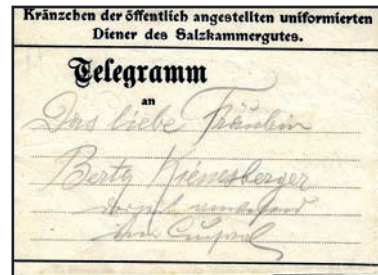 Kränzchen der öffentlich angestellten uniformierten
Diener des Salzkammergutes.
Telegramm
an
Das liebe Fräulein
Berty Kienesberger